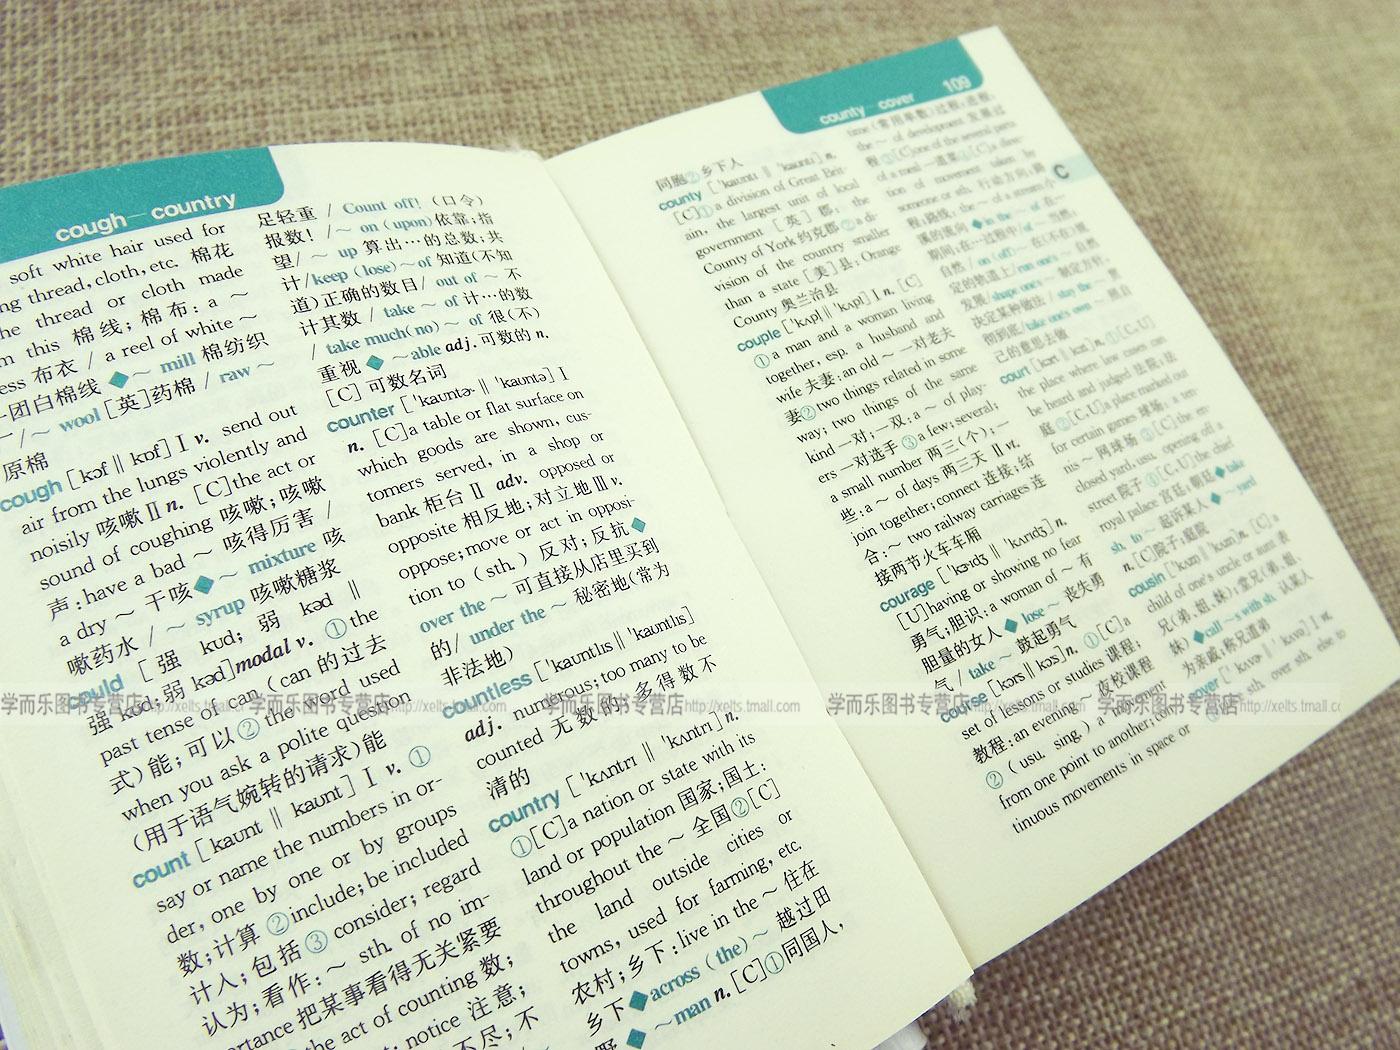 cough—country
soft white hair used for
ng thread, cloth, etc. 棉花
he thread or cloth made
m this 棉线；棉布：a ～
ess 布衣 / a reel of white ～
一团白棉线 ◆～ mill 棉纺织
/～ wool [英]药棉 / raw ～
原棉
cough [kɔf ‖ kɒf] Ⅰ v. send out
air from the lungs violently and
noisily 咳嗽 Ⅱ n. [C]the act or
sound of coughing 咳嗽；咳嗽
声：have a bad ～ 咳得厉害 /
a dry ～ 干咳◆～ mixture 咳
嗽药水 / ～ syrup 咳嗽糖浆
could [强 kud; 弱 kəd ‖
强 kʊd; 弱 kəd]modal v. ①the
past tense of can (can 的过去
式)能；可以②the word used
when you ask a polite question
(用于语气婉转的请求)能
count [kaʊnt ‖ kaʊnt] Ⅰ v. ①
say or name the numbers in or-
der, one by one or by groups
数；计算 ②include; be included
计人；包括③ consider; regard
认为；看作：～ sth. of no im-
ortance 把某事看得无关紧要
the act of counting 数；
notice 注意；
不尽；不
足轻重 / Count off! (口令)
报数！ /～ on (upon)依靠；指
望/ ～ up 算出…的总数；共
计/keep (lose)～of 知道(不知
道)正确的数目/ out of ～ 不
计其数 / take ～ of 计…的数
/ take much(no) ～ of 很(不)
重视 ◆ ～able adj. 可数的 n.
[C] 可数名词
counter ['kaʊntɚ ‖ 'kaʊntə] Ⅰ
n. [C]a table or flat surface on
which goods are shown, cus-
tomers served, in a shop or
bank 柜台 Ⅱ adv. opposed or
opposite 相反地；对立地 Ⅲ v.
oppose; move or act in opposi-
tion to (sth.) 反对；反抗◆
over the ～ 可直接从店里买到
的/ under the ～ 秘密地(常为
非法地)
countless ['kaʊntlɪs ‖ 'kaʊntlɪs]
adj. numerous; too many to be
counted 无数的；多得数不
清的
country ['kʌntrɪ ‖ 'kʌntrɪ] n.
①[C]a nation or state with its
land or population 国家；国土：
throughout the ～ 全国②[C]
the land outside cities or
towns, used for farming, etc.
农村；乡下：live in the ～ 住在
乡下◆across (the)～ 越过田
野 ◆ ～man n. [C]①同国人，
county—cover 109
同胞②乡下人
county ['kaʊntɪ ‖ 'kaʊntɪ] n.
[C]①a division of Great Brit-
ain, the largest unit of local
government [英]郡：the
County of York 约克郡②a di-
vision of the country smaller
than a state [美]县：Orange
County 奥兰治县
couple ['kʌpl ‖ 'kʌpl] Ⅰ n. [C]
①a man and a woman living
together, esp. a husband and
wife 夫妻：an old ～ 一对老夫
妻②two things related in some
way; two things of the same
kind 一对；一双：a ～ of play-
ers 一对选手 ③a few; several;
a small number 两三(个)；一
些：a ～ of days 两三天 Ⅱ vt.
join together; connect 连接；结
合：～ two railway carriages 连
接两节火车车厢
courage ['kɝɪdʒ ‖ 'kʌrɪdʒ] n.
[U]having or showing no fear
勇气；胆识：a woman of ～ 有
胆量的女人 ◆ lose ～ 丧失勇
气/ take ～ 鼓起勇气
course [kɔrs ‖ kɔs]n. ①[C]a
set of lessons or studies 课程；
教程：an evening ～ 夜校课程
② (usu. sing.) a movement
from one point to another; con-
tinuous movements in space or
time (常用单数)过程；进程：
the ～ of development 发展过
程 ③[C]one of the several parts
of a meal 一道菜④[C]a direc-
tion of movement taken by
someone or sth. 行动方向；路
程；路线：the ～ of a stream 小
溪的流向 ◆in the ～ of 在…
期间；在…过程中/of ～ 当然；
自然 / on (off) ～ 在(不在)预
定的轨道上/run one's ～ 自然
发展/shape one's ～ 制定方针；
决定某种做法/ stay the ～ 贯
彻到底/take one's own ～ 照自
己的意思去做
court [kɔrt ‖ kɔt] n. ①[C, U]
the place where law cases can
be heard and judged 法院；法
庭 ②[C, U]a place marked out
for certain games 球场：a ten-
nis ～ 网球场 ③[C] the en-
closed yard, usu. opening off a
street 院子 ④[C, U] the chief
royal palace 宫廷；朝廷 ◆ take
sh. to ～ 起诉某人 ◆ ～ yard
n. [C]院子；庭院
cousin ['kʌzn ‖ 'kʌzn]n. [C] a
child of one's uncle or aunt 表
兄(弟、姐、妹)；堂兄(弟、姐、
妹) ◆call ～s with sb. 认某人
为亲戚；称兄道弟
cover ['kʌvɚ ‖ 'kʌvə] Ⅰ vt.
C
学而乐图书专营店 http://xelts.tmall.com
学而乐图书专营店 http://xelts.tmall.com
学而乐图书专营店 http://xelts.tmall.com
学而乐图书专营店 http://xelts.tmall.com